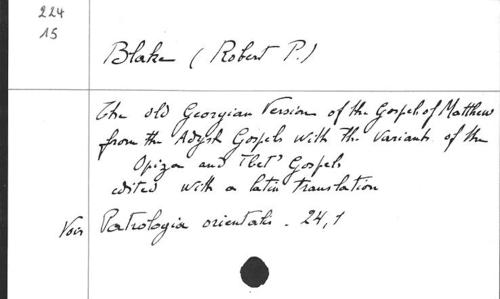 224
15
Blake (Robert P.)
The old Georgian Version of the Gospel of Matthew
from the Adysh Gospels with the variants of the
Opiza and Tbet' Gospels
edited with a latin translation
Voir Patrologia orientalis . 24, 1